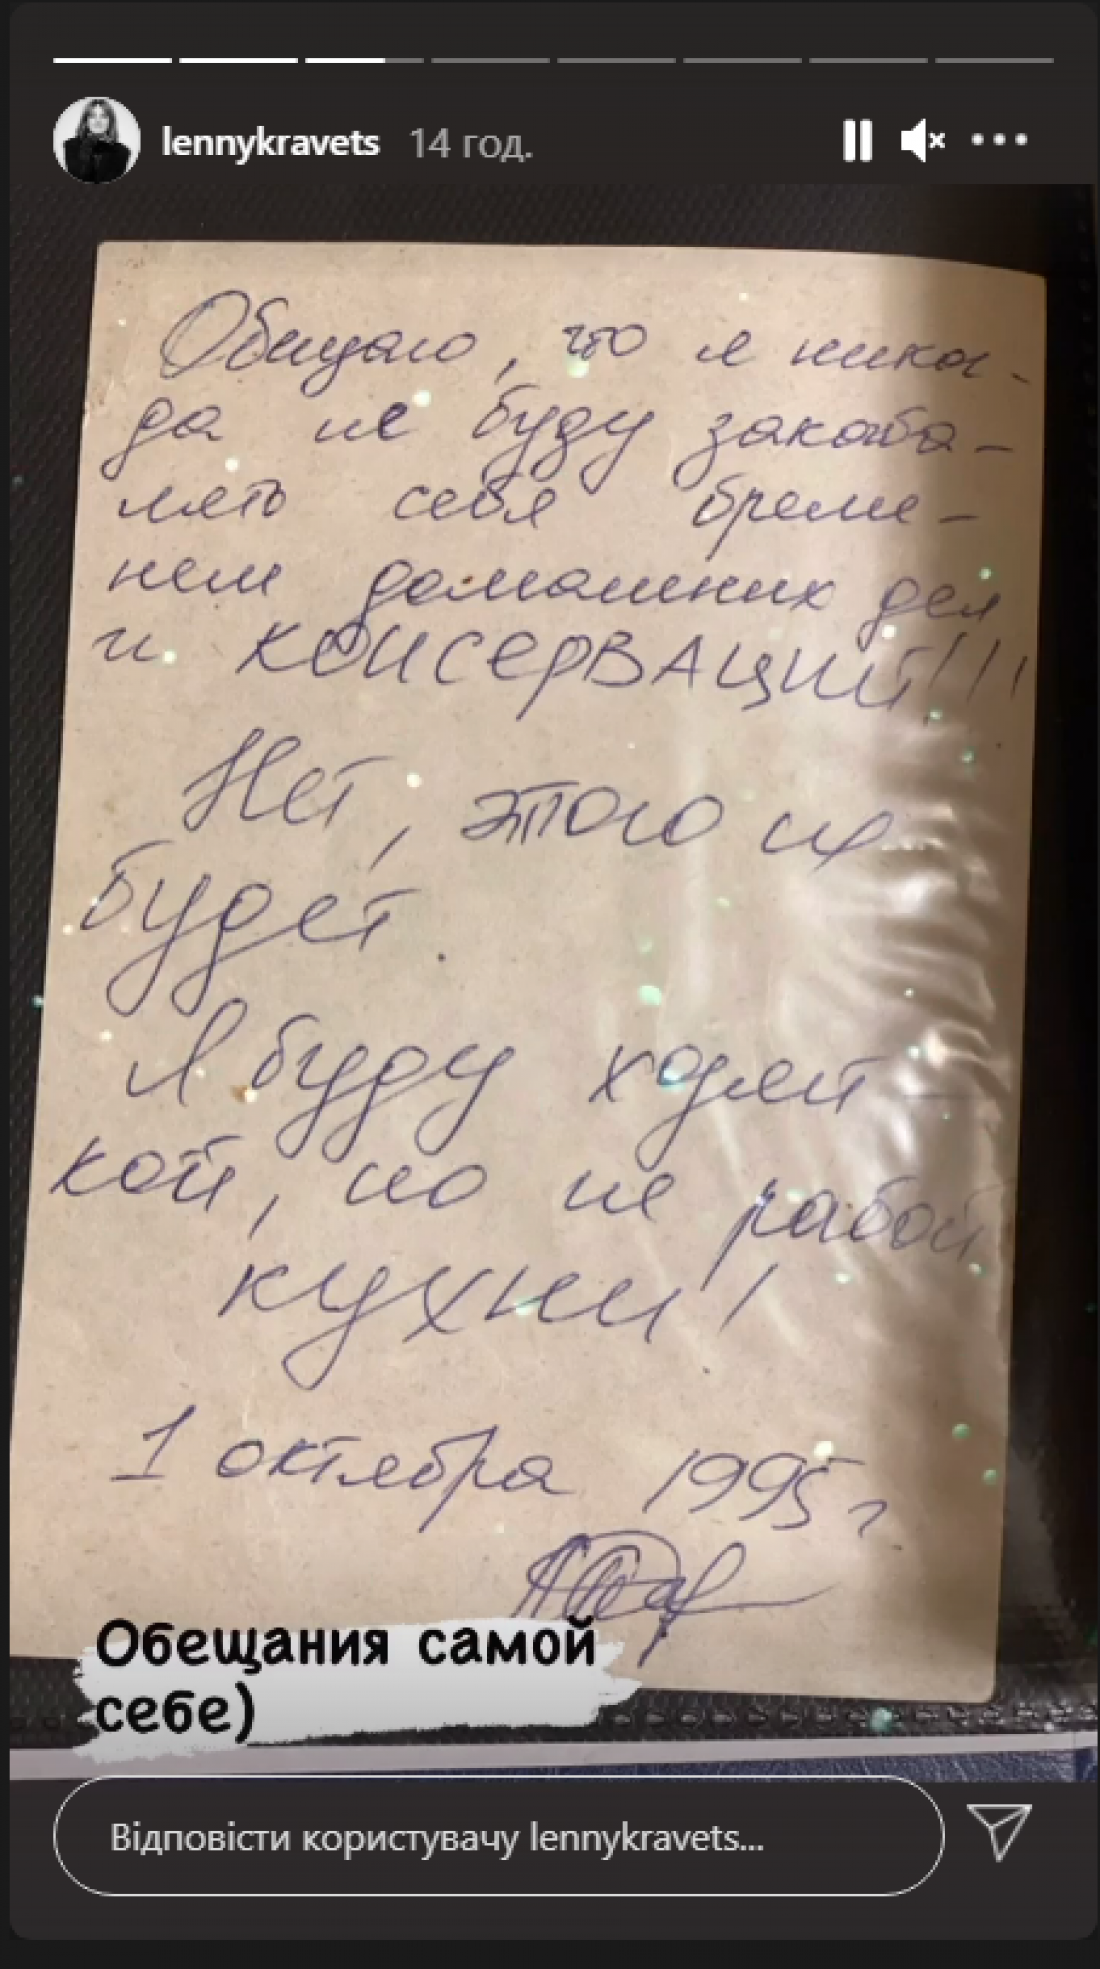 lennykravets 14 год.
Обещаю, что я никог-
да не буду закаба-
лять себя бреме-
нем домашних дел
и КОНСЕРВАЦИЙ!!!
Нет, этого не
будет.
Я буду хозяй
кой, но не рабой
кухни!
1 октября 1995 г
Обещания самой
себе)
Відповісти користувачу lennykravets...